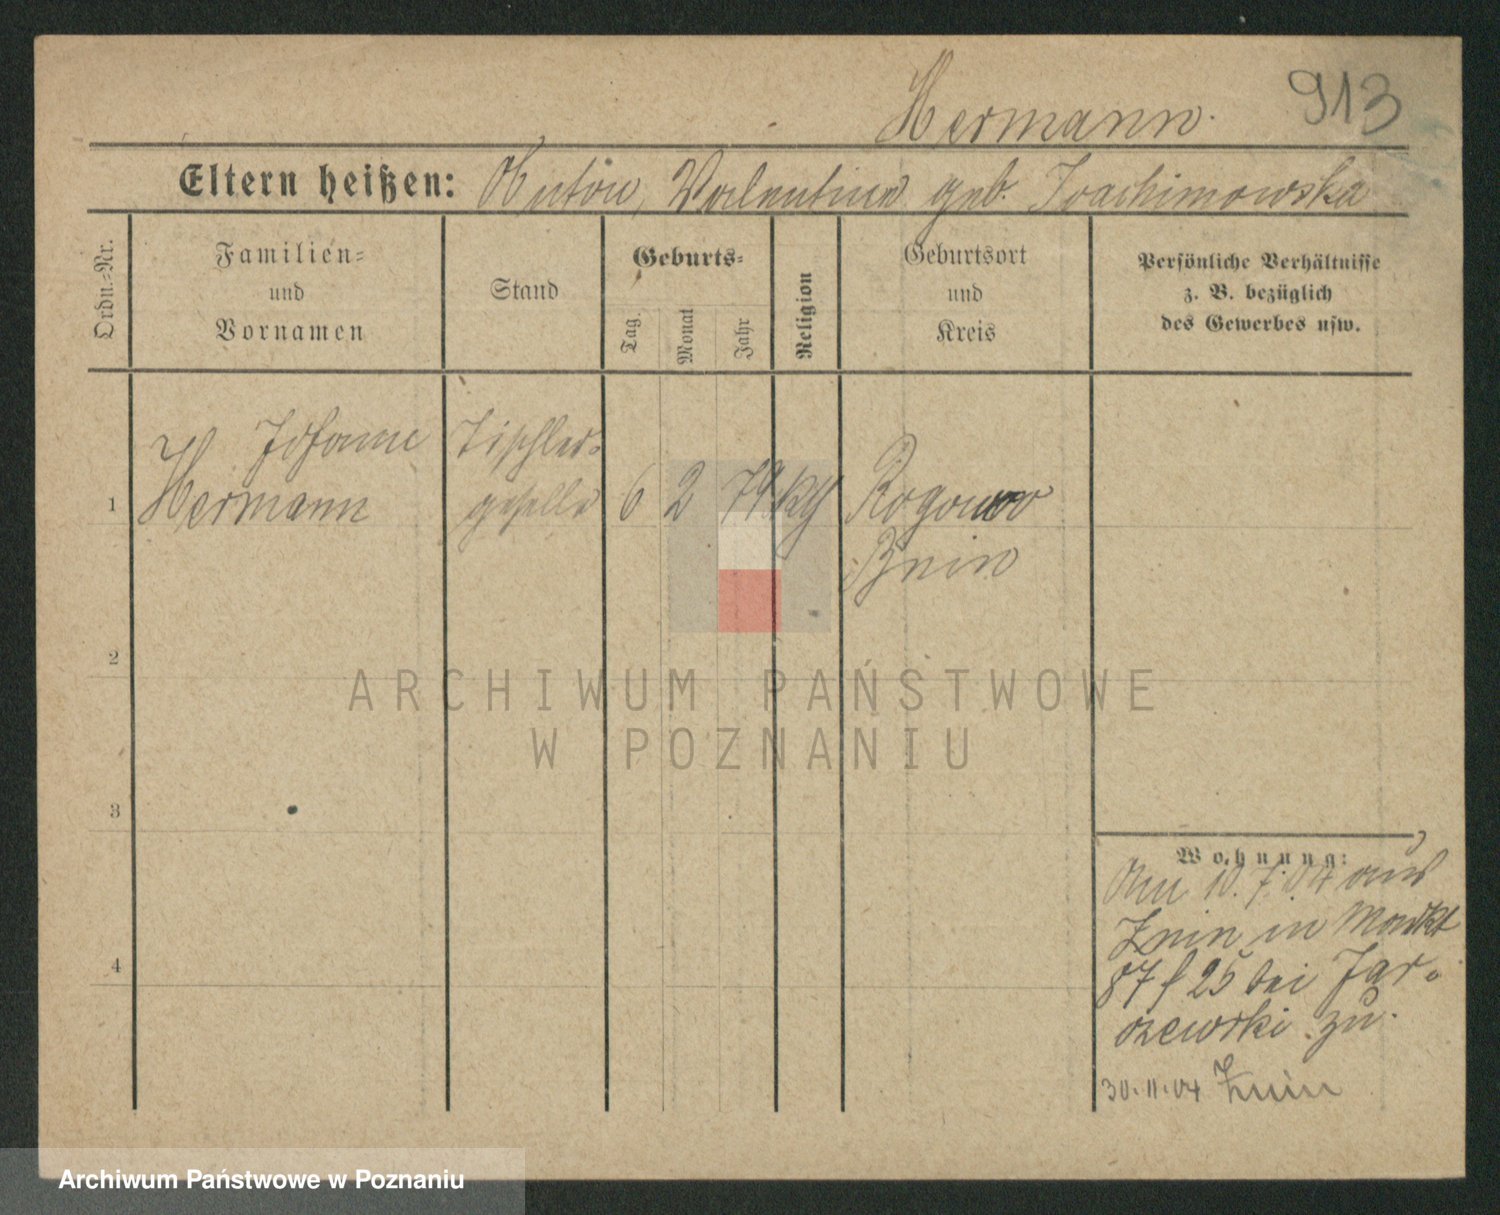 Hermann.
913
Eltern heißen: Anton, Valentine geb. Joachimowska
Ordn.-Nr.
Familien-
und
Vornamen
Stand
Geburts-
Tag.
Monat
Jahr
Religion
Geburtsort
und
Kreis
Persönliche Verhältnisse
z. B. bezüglich
des Gewerbes usw.
Johann
Hermann
Tischler-
geselle
1
6
2
79
Rogowo
Znin
2
3
4
Wohnung:
Am 10.7.04 aus
Znin in Markt
87 f 25 bei Jar-
ozewski zu.
30.11.04 Znin
ARCHIWUM PAŃSTWOWE
W POZNANIU
Archiwum Państwowe w Poznaniu